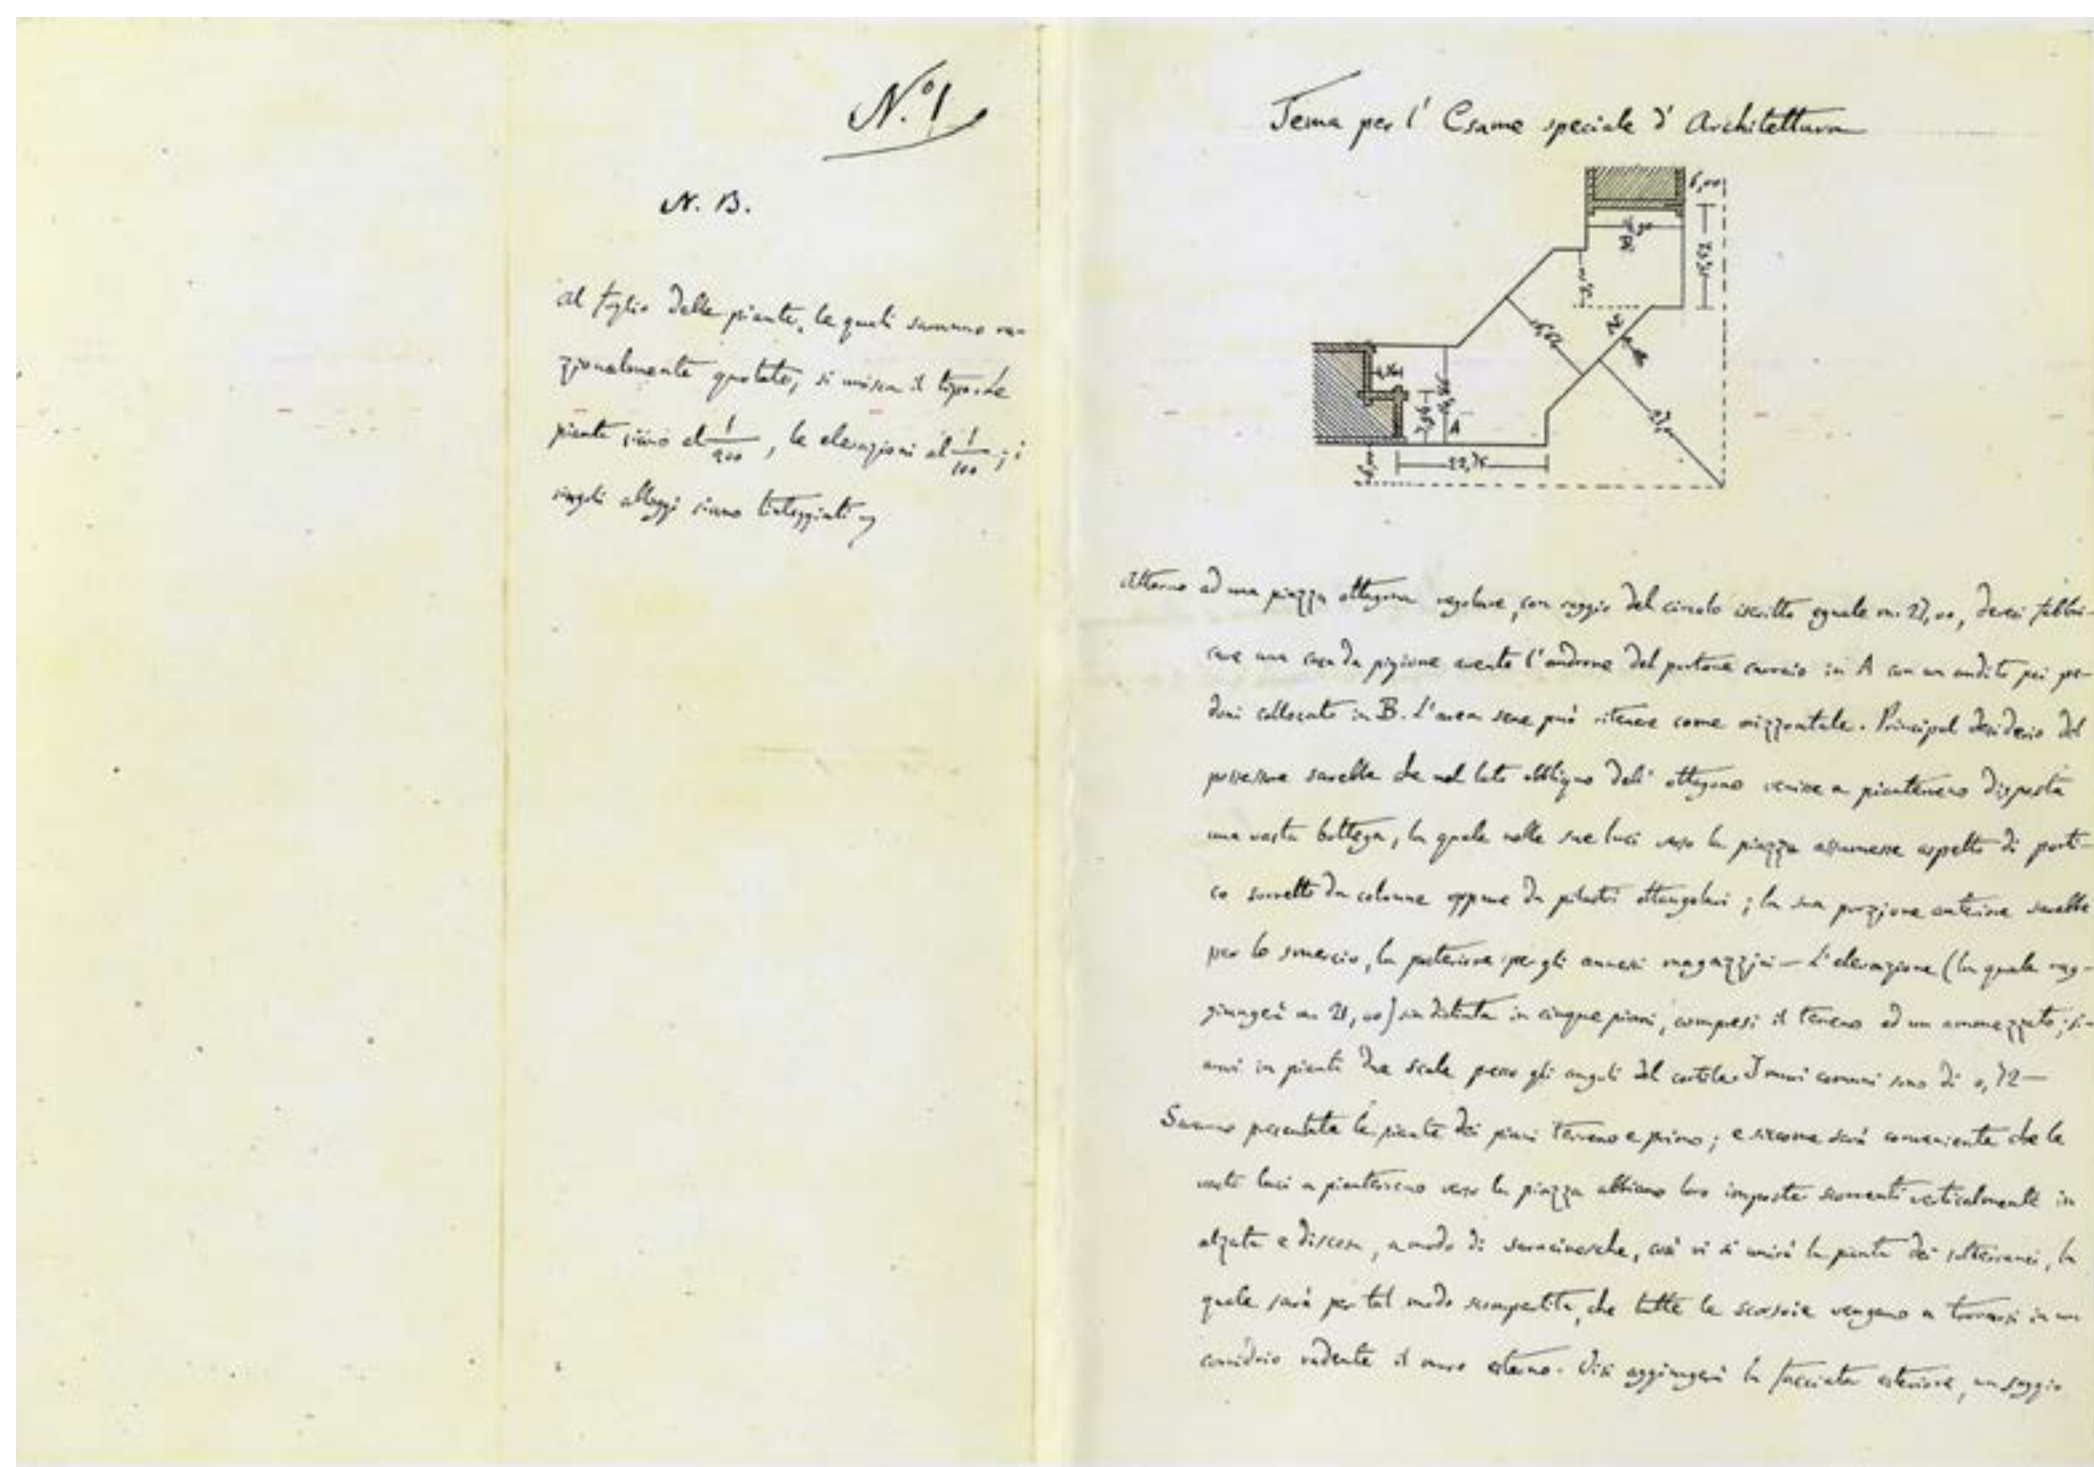 N.º 1
N. B.
Al foglio delle piante, le quali saranno ra-
zionalmente quotate, si unisca il tipo. Le
piante siano al 1/200, le elevazioni al 1/100; i
singoli alloggi siano tinteggiati
Tema per l' Esame speciale d' Architettura
6,00
B
A
22,75
27,00
Attorno ad una piazza ottagona regolare, con raggio del circolo iscritto eguale m. 27,00, devesi fabbri-
care una casa da pigione avente l'androne del portone carraio in A con un andito pei pe-
doni collocato in B. L'area sene può ritenere come orizzontale. Principal desiderio del
possessore sarebbe che nel lato obbliquo dell' ottagono venisse a pianterreno disposta
una vasta bottega, la quale nelle sue luci verso la piazza assumesse aspetto di porti-
co sorretto da colonne oppure da pilastri ottangolari; la sua porzione anteriore sarebbe
per lo smercio, la posteriore per gli annessi magazzini — L'elevazione (la quale rag-
giungerà m. 21,00) sia distinta in cinque piani, compresi il terreno ed un ammezzato; si-
anvi in pianta due scale presso gli angoli del cortile. I muri comuni sono di 0,72 —
Saranno presentate le piante dei piani terreno e primo; e siccome sarà conveniente che le
vaste luci a pianterreno verso la piazza abbiano loro imposte scorrenti verticalmente in
alzata e discesa, a modo di saracinesche, così vi si unirà la pianta dei sotterranei, la
quale sarà per tal modo scompartita, che tutte le scorsoie vengano a trovarsi in un
corridoio radente il muro esterno. Vi si aggiungerà la facciata esteriore, un saggio